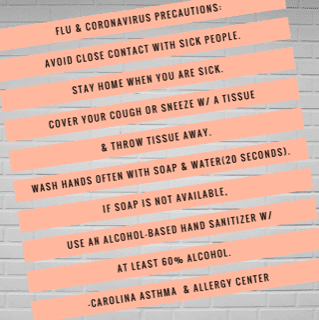 FLU & CORONAVIRUS PRECAUTIONS:
AVOID CLOSE CONTACT WITH SICK PEOPLE.
STAY HOME WHEN YOU ARE SICK.
COVER YOUR COUGH OR SNEEZE W/ A TISSUE
& THROW TISSUE AWAY.
WASH HANDS OFTEN WITH SOAP & WATER(20 SECONDS).
IF SOAP IS NOT AVAILABLE,
USE AN ALCOHOL-BASED HAND SANITIZER W/
AT LEAST 60% ALCOHOL.
-CAROLINA ASTHMA & ALLERGY CENTER